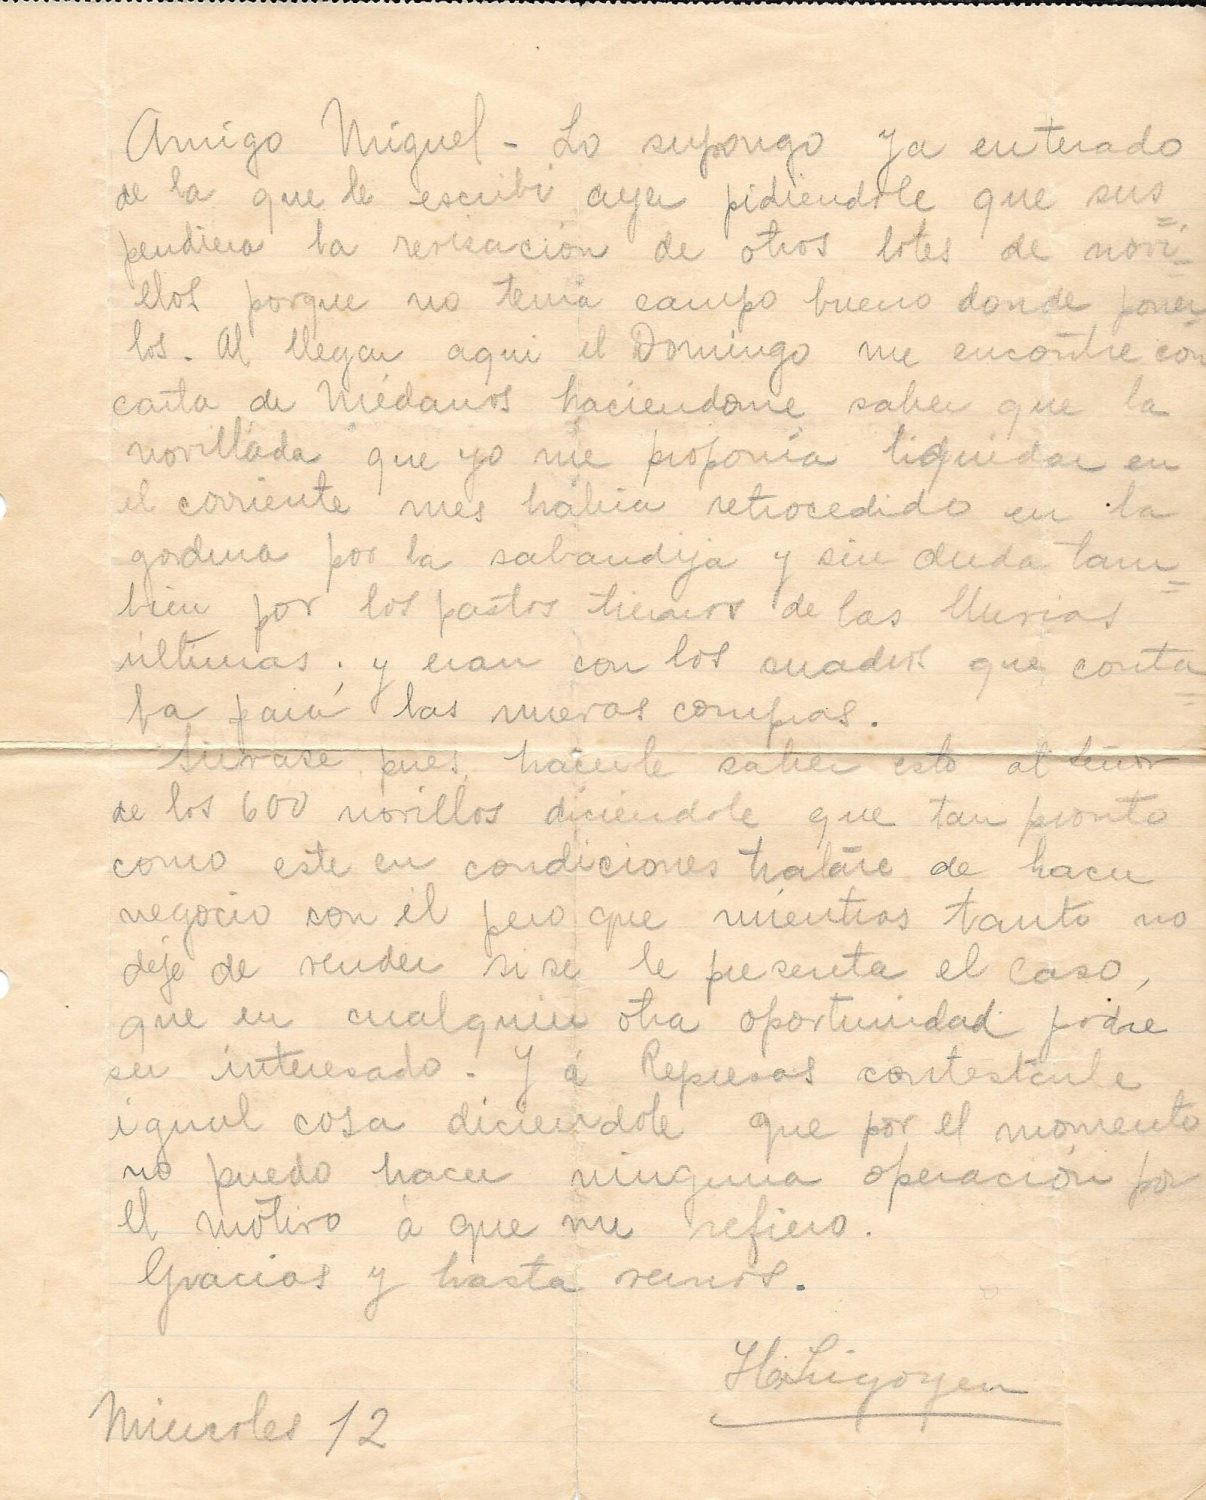 Amigo Miguel - Lo supongo ya enterado
de la que le escribí ayer pidiendole que sus=
pendiera la revisación de otros lotes de novi=
llos porque no tenia campo bueno donde poner=
los. Al llegar aqui el Domingo me encontre con
carta de Médanos haciendome saber que la
novillada que yo me proponia liquidar en
el corriente mes habia retrocedido en la
gordura por la sabandija y sin duda tam=
bien por los pastos tiernos de las lluvias
ultimas; y eran con los cuadros que conta=
ba para las nuevas compras.
Sirvase pues, hacerle saber esto al señor
de los 600 novillos diciendole que tan pronto
como este en condiciones tratare de hacer
negocio con el pero que mientras tanto no
deje de vender si se le presenta el caso,
que en cualquier otra oportunidad podre
ser interesado. Y á Represas contestarle
igual cosa diciendole que por el momento
no puedo hacer ninguna operación por
el motivo á que me refiero.
Gracias y hasta vernos.
H. Yrigoyen
Miercoles 12